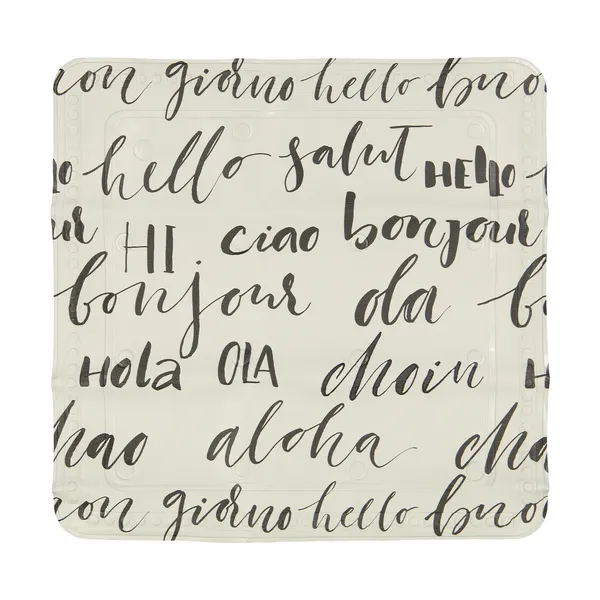 uon giorno hello buo
lo hello salut HELLO
ur HI. ciao bonjour
bonjour ola b
Hola OLA choin H
hao aloha cha
uon giorno hello buo